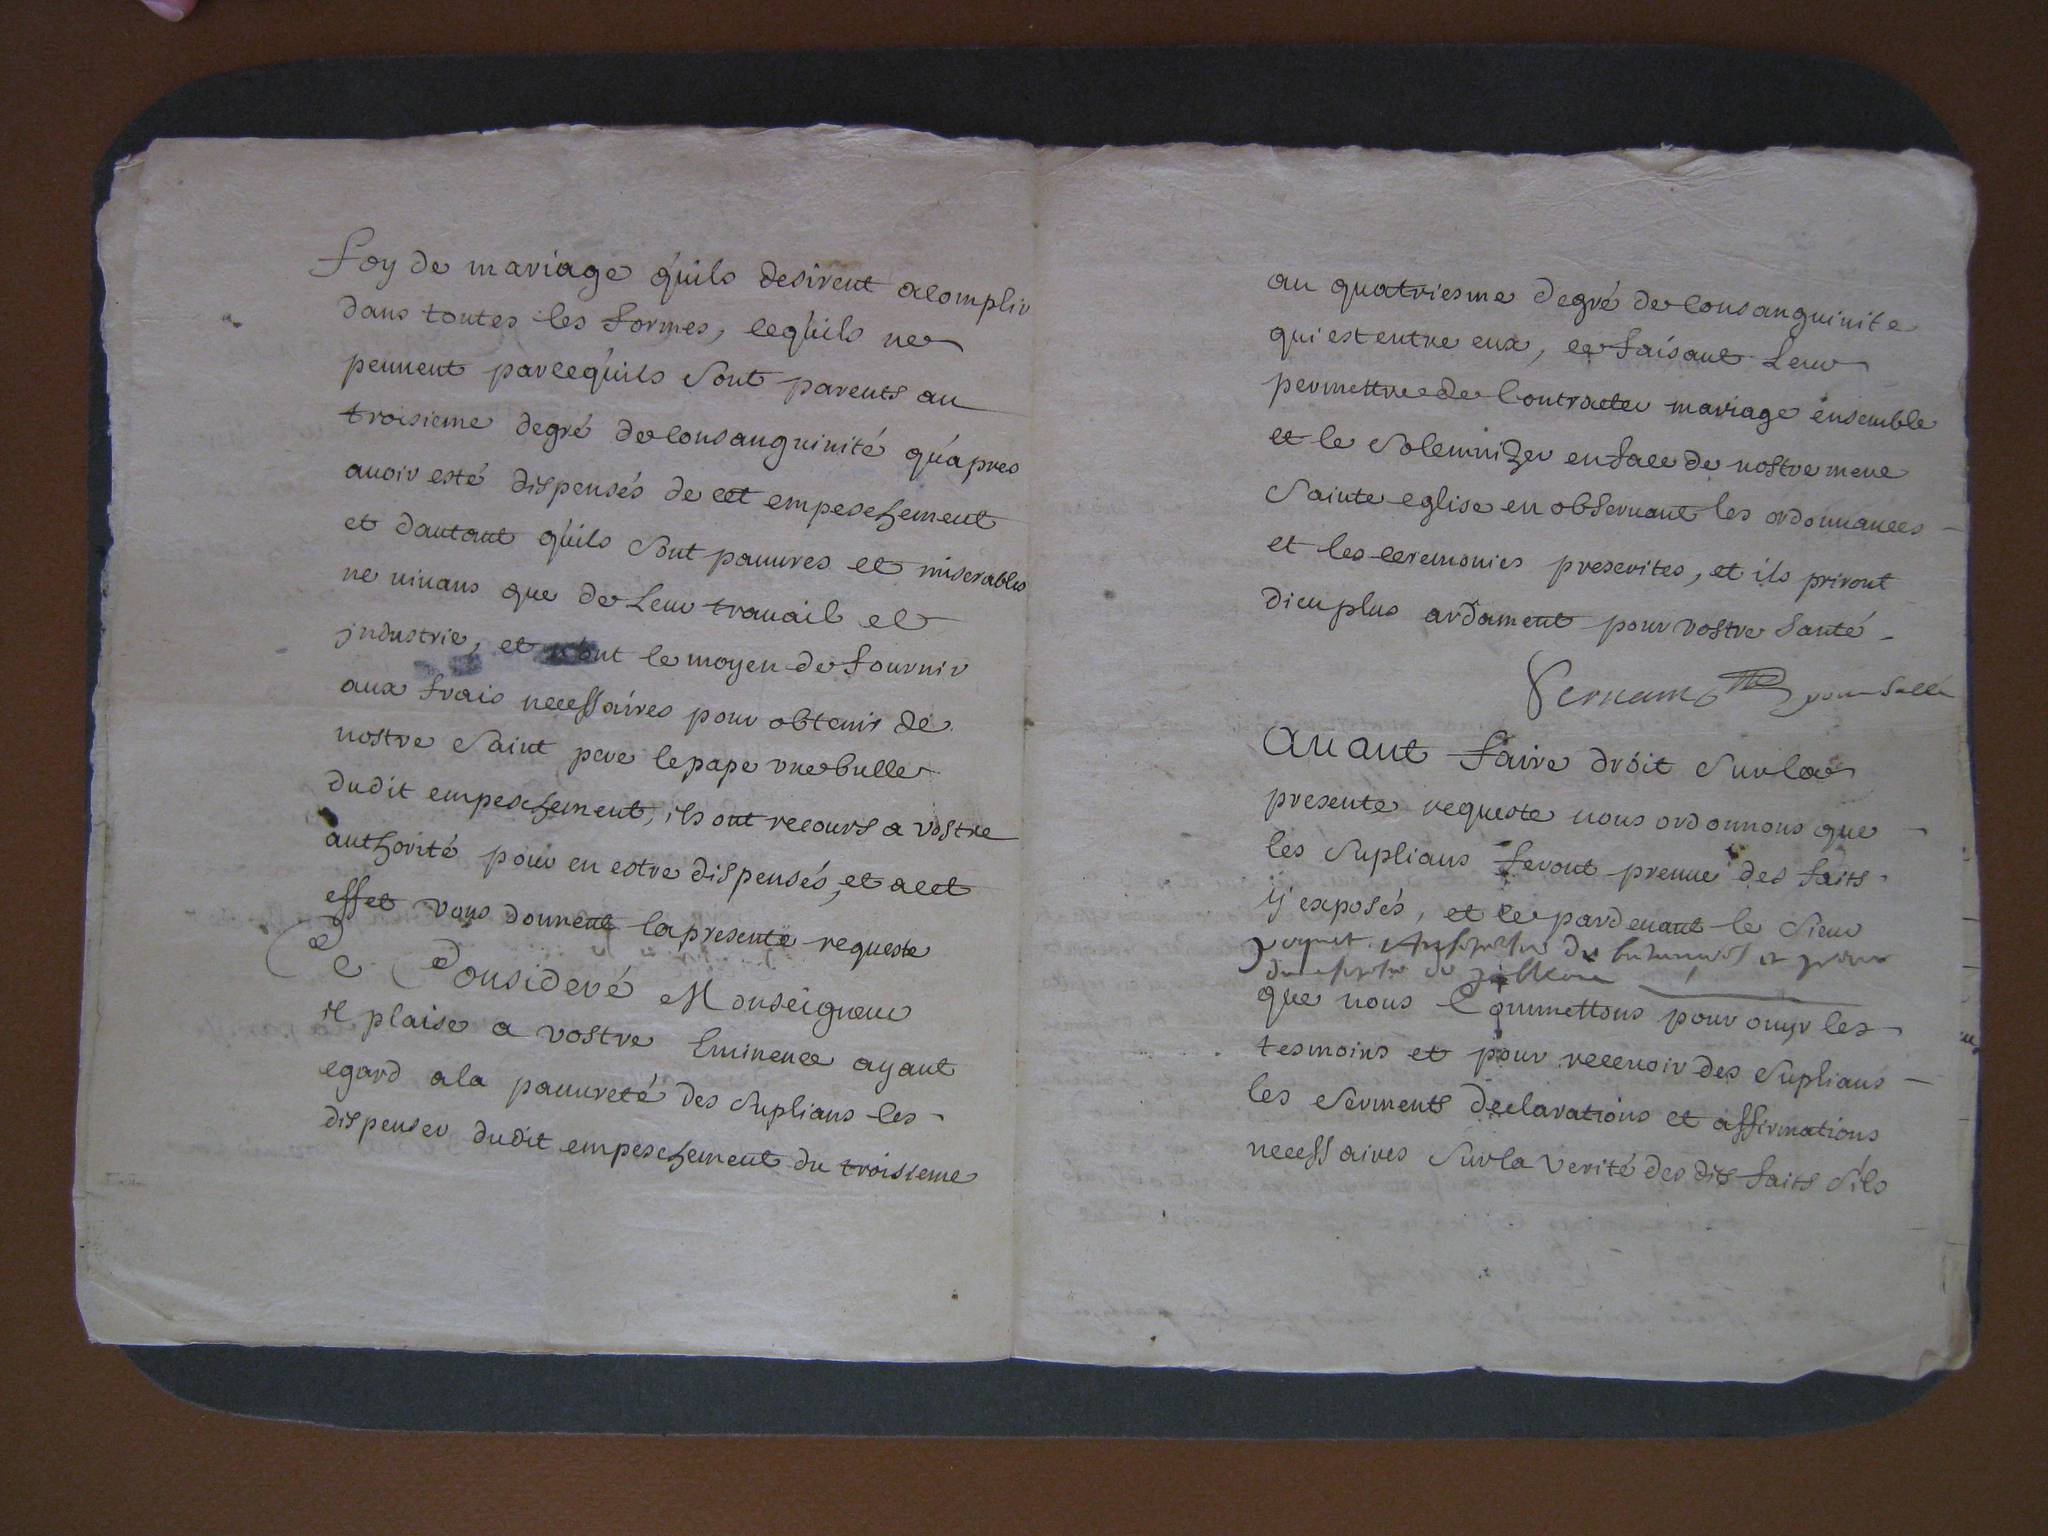 foy de mariage qu'ils desirent acomplir
dans toutes les formes, cequ'ils ne
peuuent parcequ'ils sont parents au
troisieme degré de consanguinité qu'apres
auoir esté dispensés de cet empeschement
et dautant qu'ils sont pauures et miserables
ne viuans que de Leur trauail et
industrie, et n'ont le moyen de fournir
aux frais necessaires pour obtenir de
nostre saint pere le pape vne bulle
dudit empeschement, ils ont recours a vostre
authorité pour en estre dispensés, et acet
effet vous donnent la presente requeste
Ce Consideré Monseigneur
il plaise a vostre Eminence ayant
egard ala pauureté des suplians les
dispenser dudit empeschement du troisieme
au quatriesme degré de consanguinite
qui est entre eux, ce faisant Leur
permettre de Contracter mariage ensemble
et le solemnizer enface de nostre mere
sainte eglise en obseruant les ordonnances
et les ceremonies prescrites, et ils priront
dieu plus ardament pour vostre santé
pour
auant faire droit sur la
presente requeste nous ordonnons que
les suplians feront preuue des faits
y exposés, et ce pardeuant le sieur
et
que nous Commettons pour ouyr les
tesmoins et pour receuoir des suplians
les serments declarations et affirmations
necessaires sur la verité des dits faits s'ils